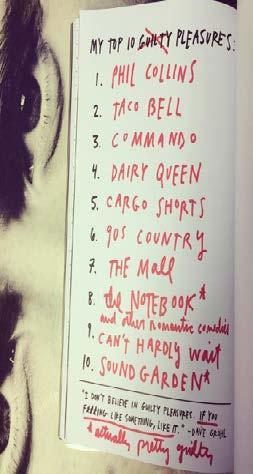 MY TOP 10 GUILTY PLEASURES:
1. PHIL COLLINS
2. TACO BELL
3. COMMANDO
4. DAIRY QUEEN
5. CARGO SHORTS
6. 90s COUNTRY
7. THE MALL
8. the NOTEBOOK*
and other romantic comedies
9. CAN'T HARDLY WAIT
10. SOUNDGARDEN*
"I DON'T BELIEVE IN GUILTY PLEASURES. IF YOU
F###ING LIKE SOMETHING, LIKE IT." -DAVE GROHL
*actually pretty guilty